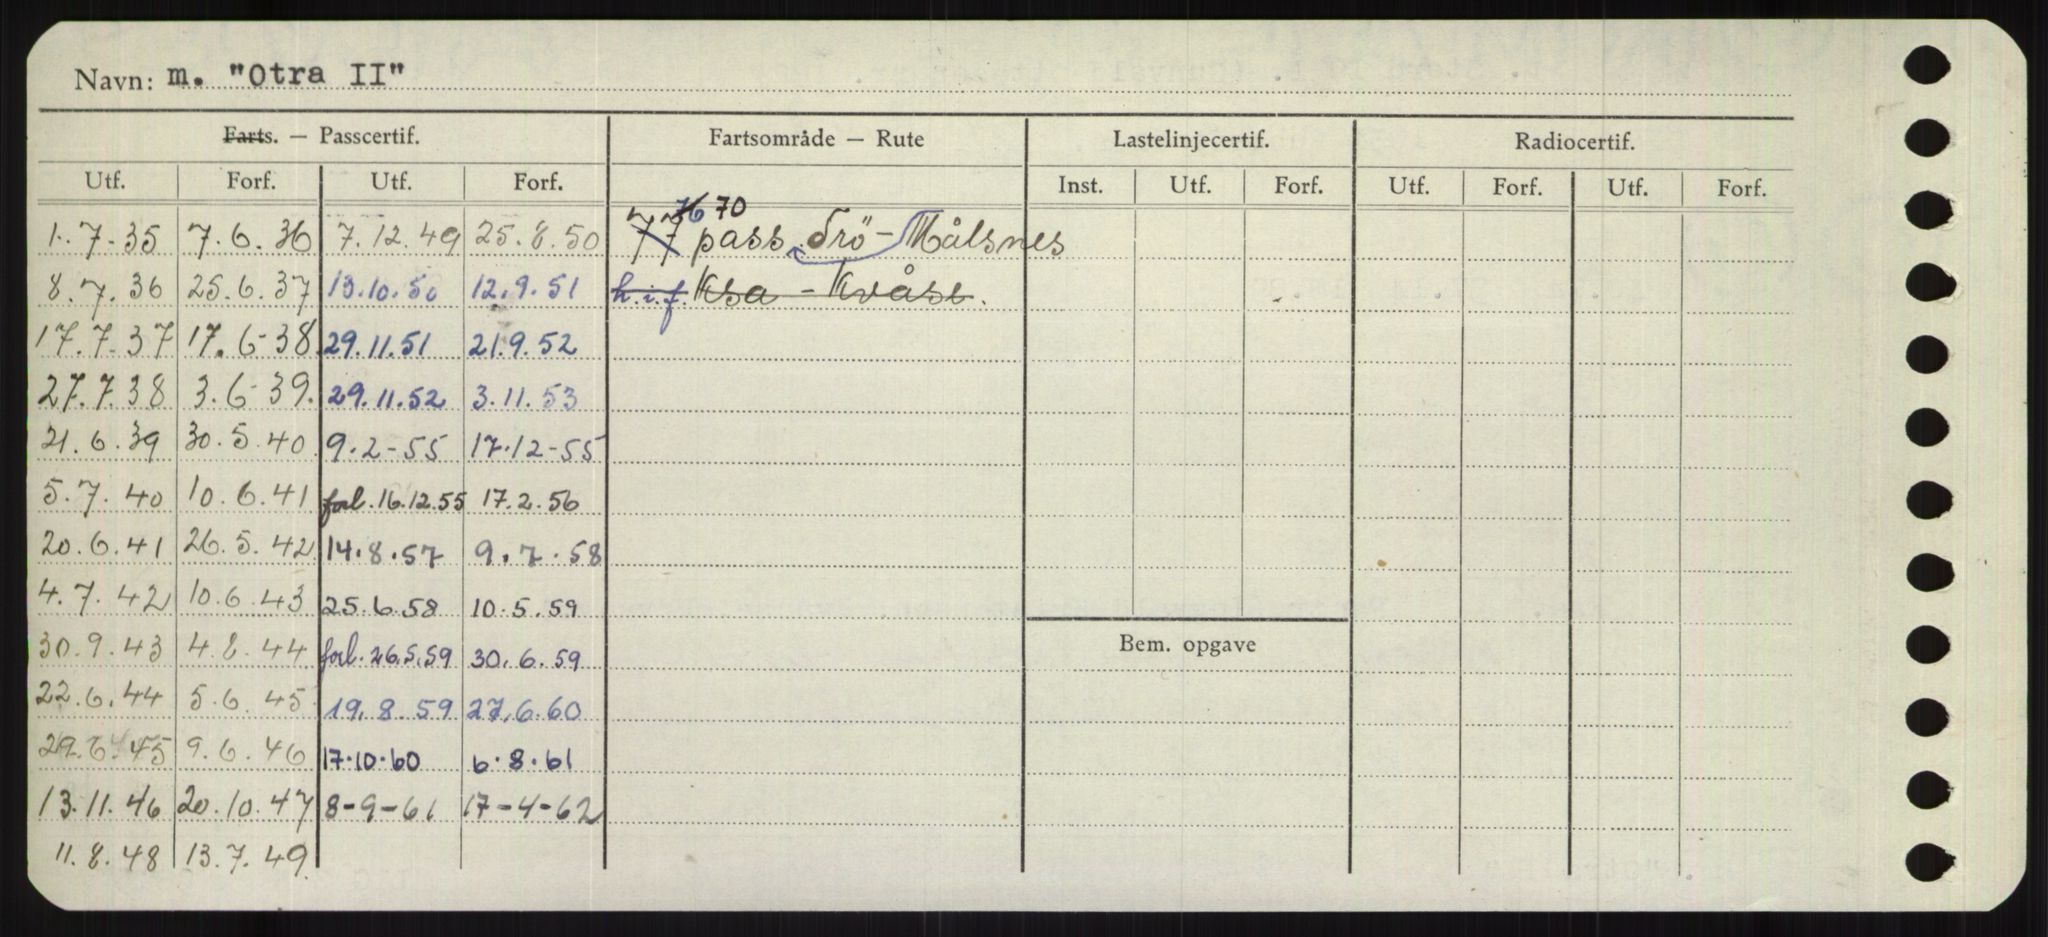 Navn: m. "Otra II"
Farts. — Passcertif. Fartsområde — Rute Lastelinjecertif. Radiocertif.
Utf. Forf. Utf. Forf. Inst. Utf. Forf. Utf. Forf. Utf. Forf.
76 70
1.7.35 7.6.36 7.12.49 25.8.50 77 pass Trö - Målsnes
8.7.36 25.6.37 13.10.50 12.9.51 h.i.f. Ksa - Kvåse.
17.7.37 17.6-38 29.11.51 21.9.52
27.7.38 3.6-39. 29.11.52 3.11.53
21.6.39 30.5.40 9.2-55 17.12-55
5.7.40 10.6.41 forl. 16.12.55 17.2.56
20.6.41 26.5.42 14.8.57 9.7.58
4.7.42 10.6.43 25.6.58 10.5.59
30.9.43 4.8.44 forl. 26.5.59 30.6.59 Bem. opgave
22.6.44 5.6.45 19.8.59 27.6.60
29.6.45 9.6.46 17.10.60 6.8.61
13.11.46 20.10.47 8-9-61 17-4-62
11.8.48 13.7.49